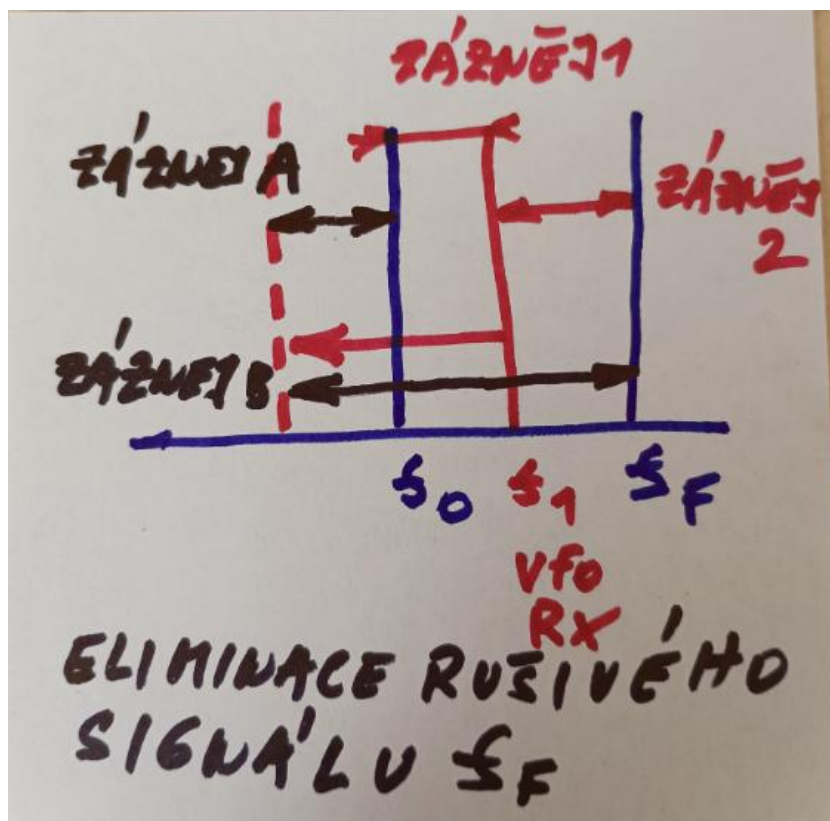 ZÁZNĚJ1
ZÁZNEJ A
ZÁZNĚJ
2
ZÁZNEJ B
f0 f1 fF
Vfo
RX
ELIMINACE RUŠIVÉHO
SIGNÁLU fF